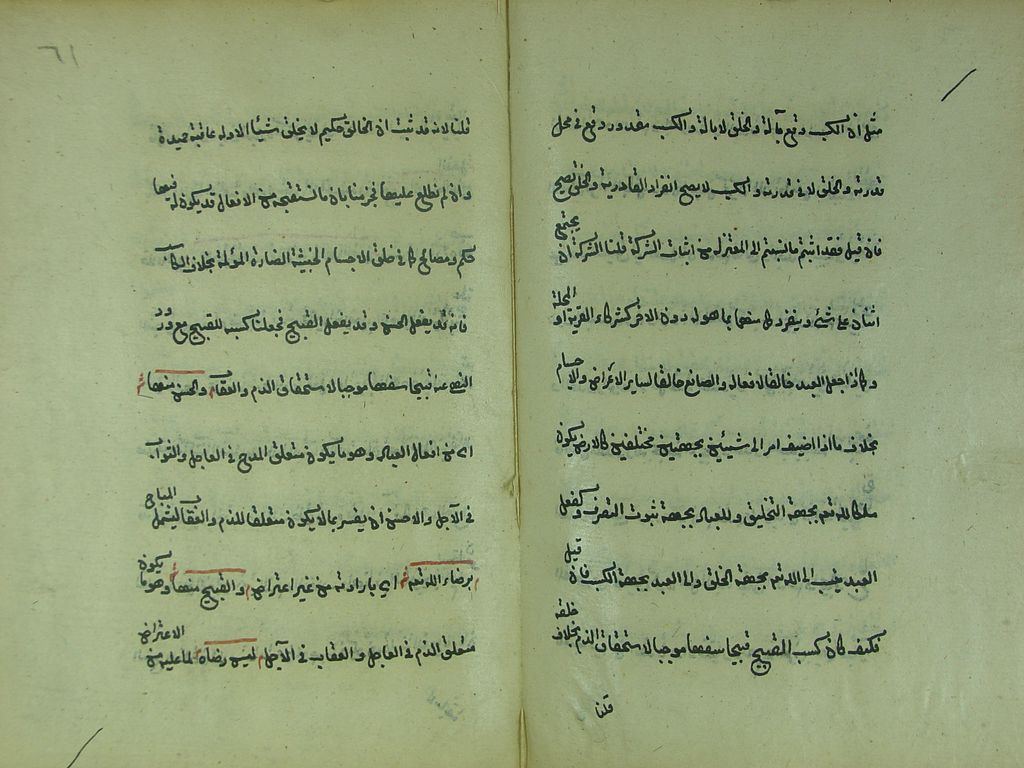 مثل ان الكسب وقع بآلة والخلق لا بآلة والكسب مقدور وقع في محل
قدرته والخلق لا في قدرته والكسب لا يصح انفراد القادر به والخلق يصح
فان قيل فقد اثبتم ما نسبتم الى المعتزلة من اثبات الشركة قلنا الشركة ان يجتمع
اثنان على شئ وينفرد كل منهما بما هو له دون الآخر كشركاء القرية او المحلة
وكما اذا جعل العبد خالقا لافعاله والصانع خالقا لساير الاعراض والاجسام
بخلاف ما اذا اضيف امر الى شيئين بجهتين مختلفتين كالارض يكون
ملكا لله تعم بجهة التخليق وللعباد بجهة ثبوت التصرف وكفعل
العبد ينسب الى الله تعم بجهة الخلق والى العبد بجهة الكسب فان قيل
فكيف كان كسب القبيح قبيحا سفها موجبا لاستحقاق الذم بخلاف خلقه
قلنا
٦١
قلنا لانه قد ثبت ان الخالق حكيم لا يخلق شيأ الا وله عاقبة حميدة
وان لم نطلع عليها فجزمنا بان ما نستقبحه من الافعال قد يكون له فيها
حكم ومصالح كما في خلق الاجسام الخبيثة الضارة المؤلمة بخلاف الكاسب
فانه قد يفعل الحسن وقد يفعل القبيح فجعلنا كسبه للقبيح مع ورود
النهى عنه قبيحا سفها موجبا لاستحقاق الذم والعقاب والحسن منها
اى من افعال العباد وهو ما يكون متعلق المدح في العاجل والثواب
في الآجل والاحسن ان يفسر بما لا يكون متعلقا للذم والعقاب ليشمل المباح
برضاء الله تعم اى بارادته من غير اعتراض والقبيح منها وهو ما يكون
متعلق الذم في العاجل والعقاب في الآجل ليس برضاه لما عليه من الاعتراض